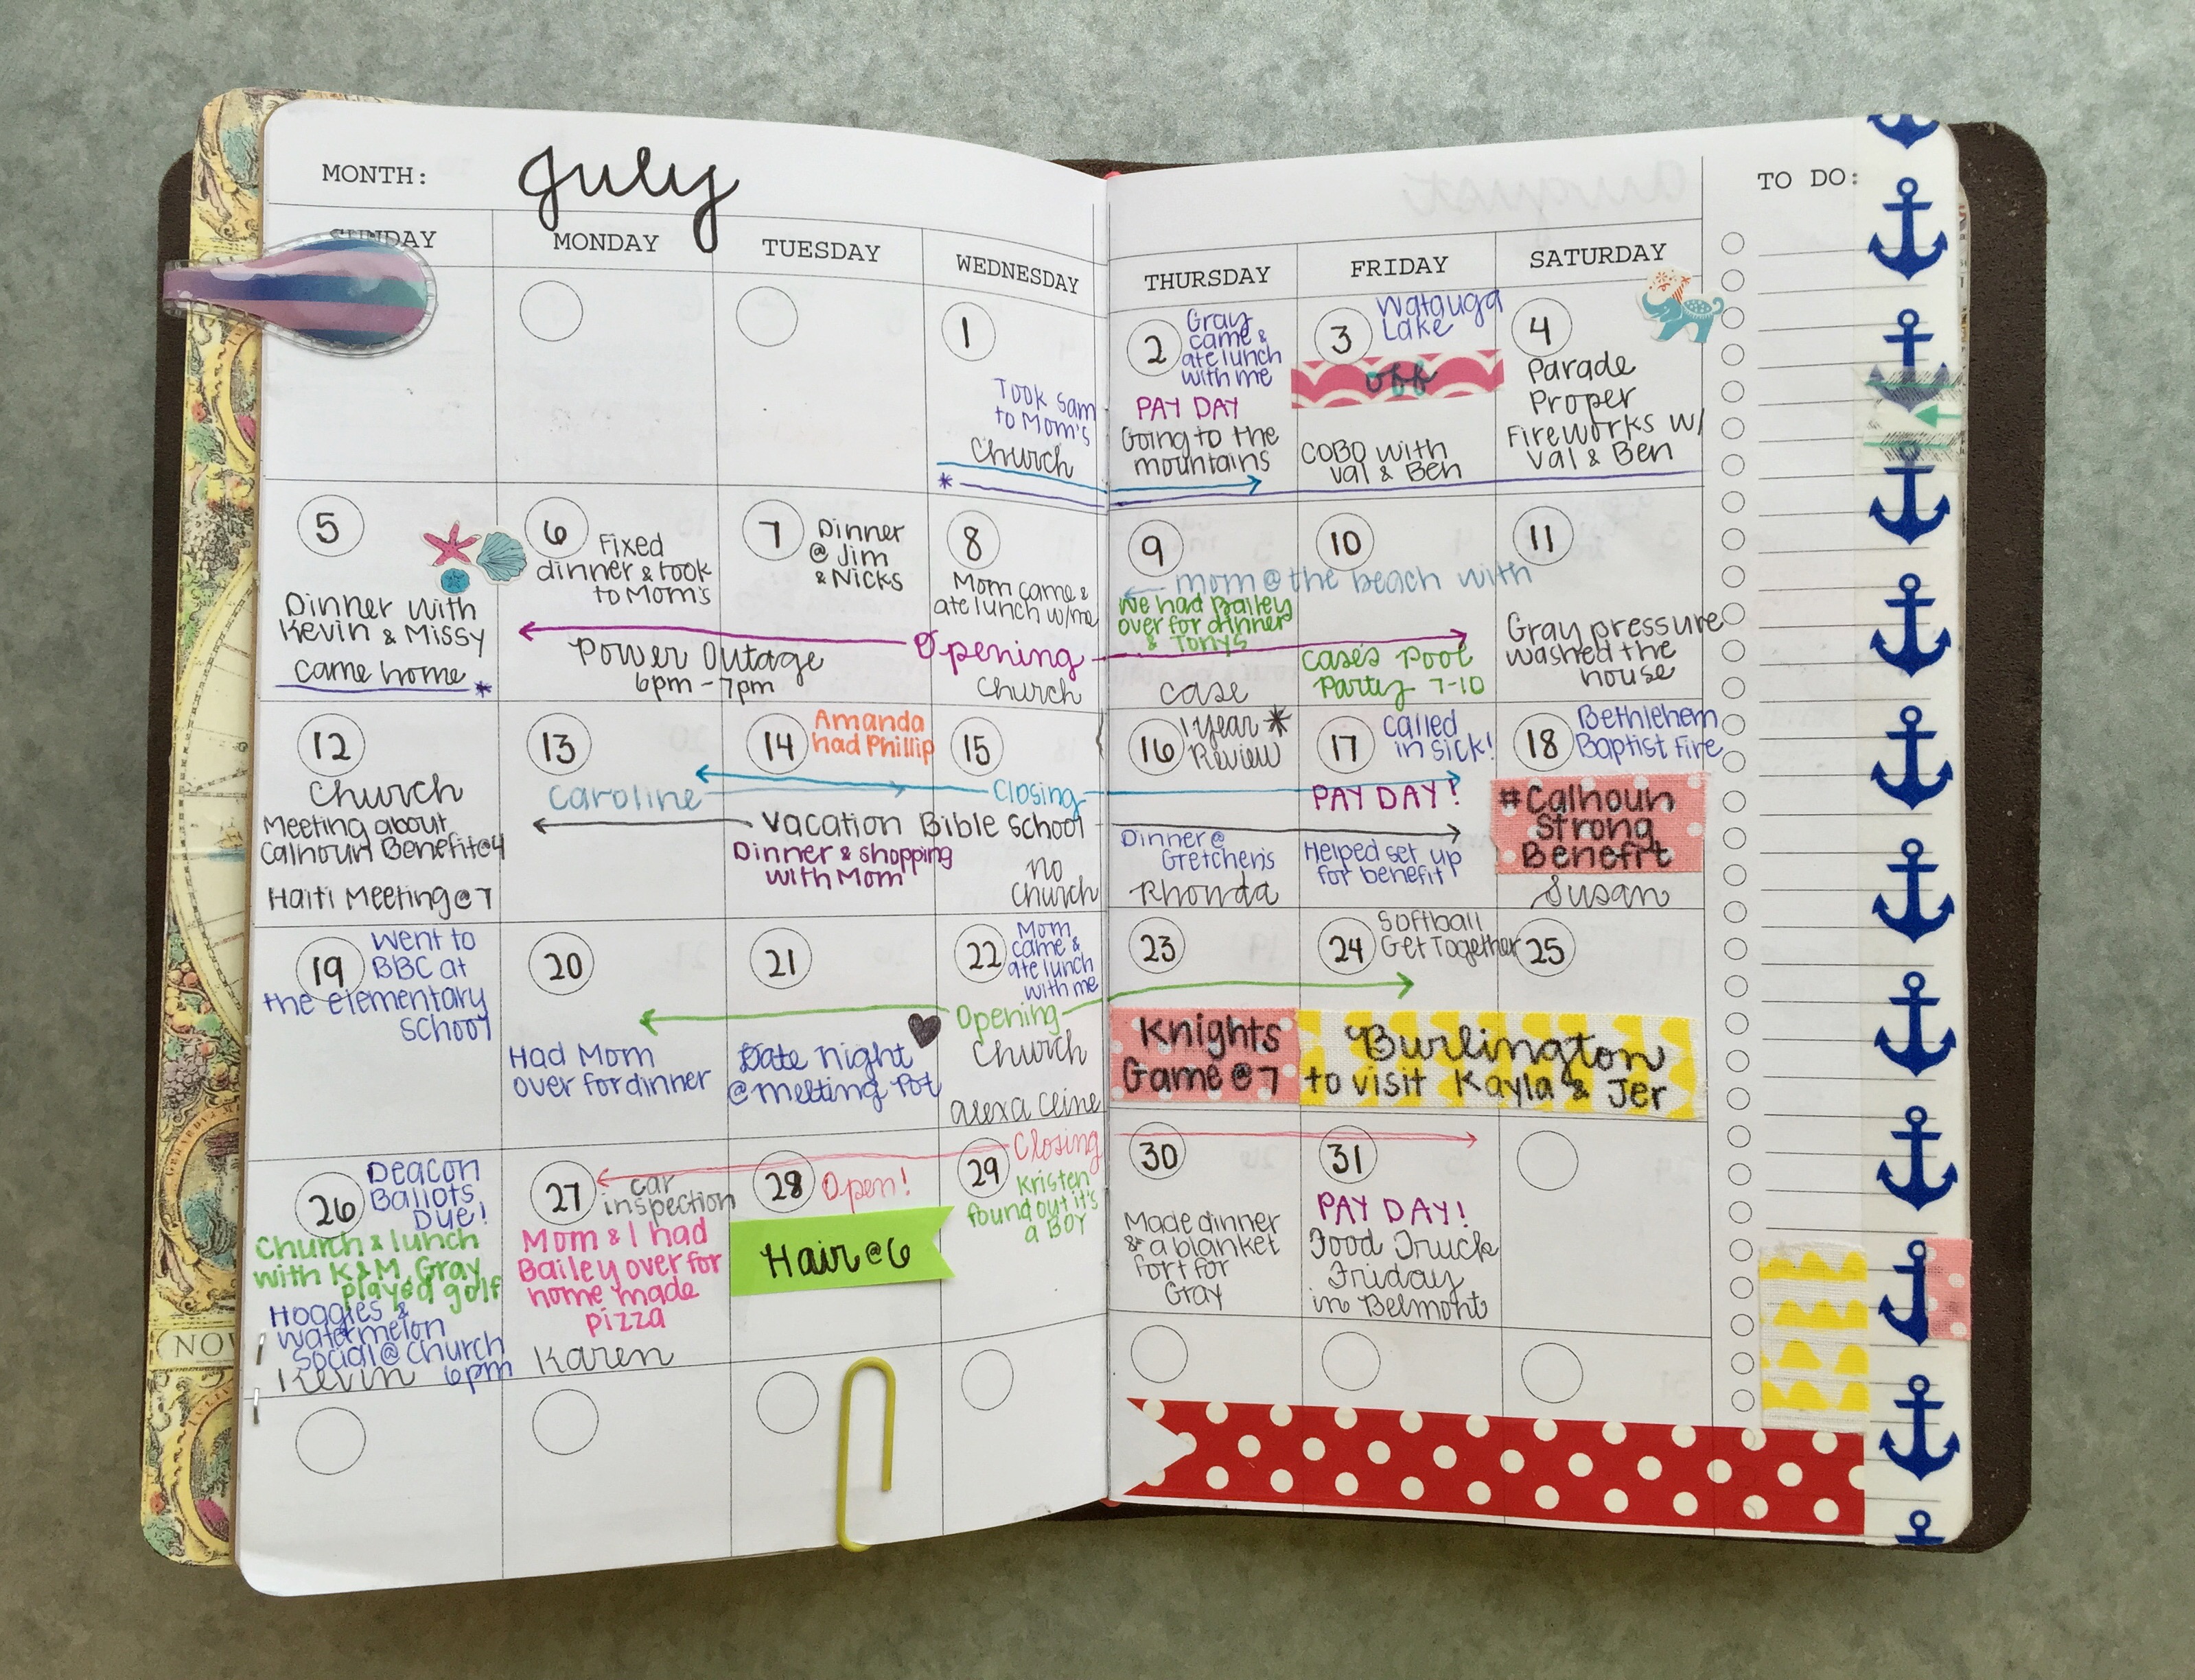 MONTH: July
TO DO:
SUNDAY MONDAY TUESDAY WEDNESDAY THURSDAY FRIDAY SATURDAY
1
Took Sam
to Mom's
Church
*
2
Gray
came &
ate lunch
with me
PAY DAY
Going to the
mountains
3
Watauga
Lake
off
COBO with
Val & Ben
4
Parade
Proper
Fireworks w/
Val & Ben
5
Dinner with
Kevin & Missy
Came home *
6
Fixed
dinner & took
to Mom's
Power Outage
6pm - 7pm
7
Dinner
@ Jim
& Nicks
8
Mom came &
ate lunch w/me
Opening
Church
9
mom @ the beach with
We had Bailey
over for dinner
& Tonys
case
10
Case's Pool
Party 7-10
11
Gray pressure
washed the
house
12
Church
Meeting about
Calhoun Benefit@4
Haiti Meeting@7
13
Caroline
14
Amanda
had Phillip
Vacation Bible School
Dinner & shopping
with Mom
15
Closing
no
Church
16
1 year *
Review
Dinner @
Gretchen's
Rhonda
17
called
in sick!
PAY DAY!
Helped set up
for benefit
18
Bethlehem
Baptist Fire
#Calhoun
Strong
Benefit
Susan
19
Went to
BBC at
the elementary
school
20
Had Mom
over for dinner
21
Date night
@ melting Pot
22
Mom
came &
ate lunch
with me
Opening
Church
23
Knights
Game @ 7
24
Softball
Get Together
Burlington
to visit Kayla & Jer
25
26
Deacon
Ballots
Due!
Church & lunch
with K&M, Gray
played golf
Hoagies &
Watermelon
Social @ Church
Kevin 6pm
27
car
inspection
Mom & I had
Bailey over for
home made
pizza
Karen
28
Open!
Hair @ 6
29
Closing
Kristen
found out it's
a BOY
30
Made dinner
& a blanket
fort for
Gray
31
PAY DAY!
Food Truck
Friday
in Belmont
NOV